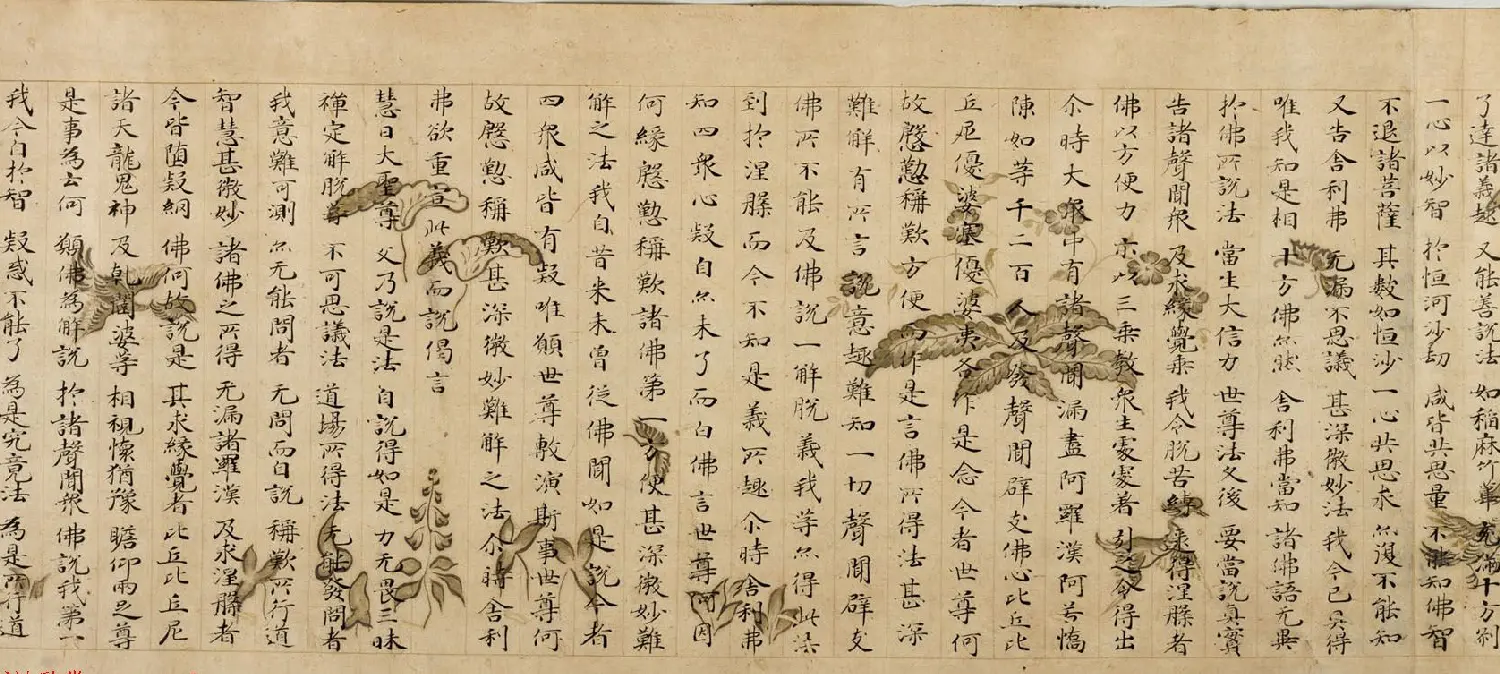 了達諸義趣 又能善說法 如稻麻竹葦 充滿十方剎
一心以妙智 於恒河沙劫 咸皆共思量 不能知佛智
不退諸菩薩 其數如恒沙 一心共思求 亦復不能知
又告舍利弗 无漏不思議 甚深微妙法 我今已具得
唯我知是相 十方佛亦然 舍利弗當知 諸佛語无異
於佛所說法 當生大信力 世尊法久後 要當說真實
告諸聲聞衆 及求緣覺乘 我令脫苦縛 逮得涅槃者
佛以方便力 亦以三乘教 衆生處處著 引之令得出
尒時大衆中有諸聲聞漏盡阿羅漢阿若憍
陳如等千二百人及發聲聞辟支佛心比丘比
丘尼優婆塞優婆夷各作是念今者世尊何
故慇懃稱歎方便而作是言佛所得法甚深
難解有所言說意趣難知一切聲聞辟支
佛所不能及佛說一解脫義我等亦得此法
到於涅槃而今不知是義所趣尒時舍利弗
知四衆心疑自亦未了而白佛言世尊何因
何緣慇懃稱歎諸佛第一方便甚深微妙難
解之法我自昔來未曾從佛聞如是說今者
四衆咸皆有疑唯願世尊敷演斯事世尊何
故慇懃稱歎甚深微妙難解之法尒時舍利
弗欲重宣此義而說偈言
慧日大聖尊 久乃說是法 自說得如是 力无畏三昧
禪定解脫等 不可思議法 道場所得法 无能發問者
我意難可測 亦无能問者 无問而自說 稱歎所行道
智慧甚微妙 諸佛之所得 无漏諸羅漢 及求涅槃者
今皆墮疑網 佛何故說是 其求緣覺者 比丘比丘尼
諸天龍鬼神 及乾闥婆等 相視懷猶豫 瞻仰兩足尊
是事為云何 願佛為解說 於諸聲聞衆 佛說我第一
我今自於智 疑惑不能了 為是究竟法 為是所行道